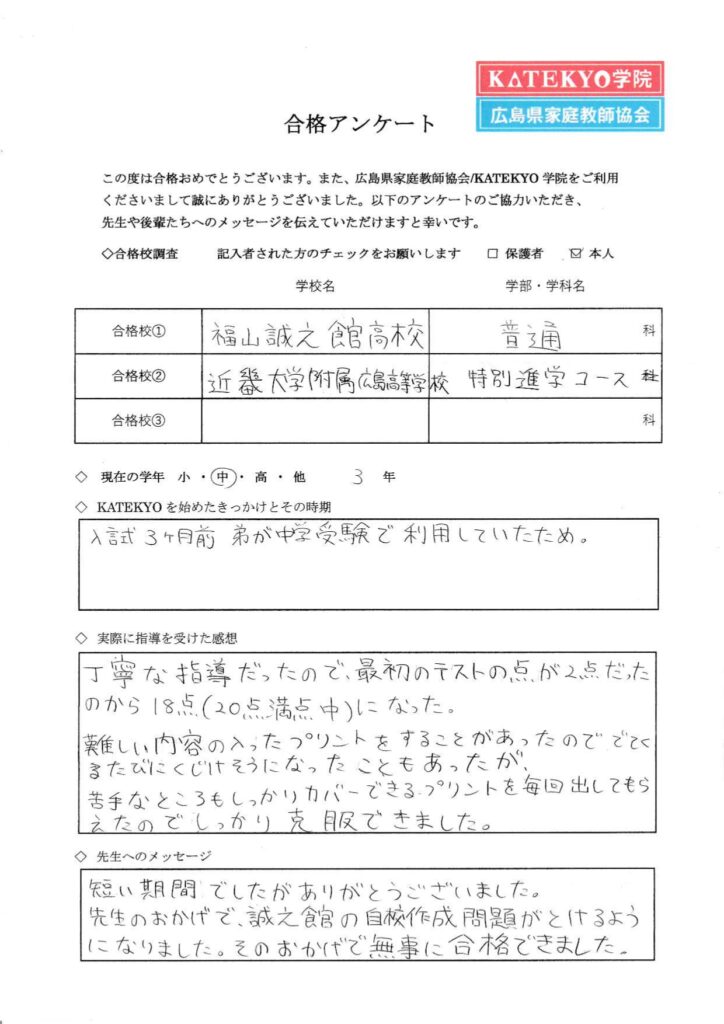 KATEKYO学院
広島県家庭教師協会
合格アンケート
この度は合格おめでとうございます。また、広島県家庭教師協会/KATEKYO 学院をご利用
くださいまして誠にありがとうございました。以下のアンケートのご協力いただき、
先生や後輩たちへのメッセージを伝えていただけますと幸いです。
◇合格校調査 記入者された方のチェックをお願いします □ 保護者 ☑ 本人
学校名 学部・学科名
合格校① 福山誠之館高校 普通 科
合格校② 近畿大学附属広島高等学校 特別進学コース 科
合格校③ 科
◇ 現在の学年 小 ・ 中 ・ 高 ・ 他 3 年
◇ KATEKYO を始めたきっかけとその時期
入試3ヶ月前 弟が中学受験で利用していたため。
◇ 実際に指導を受けた感想
丁寧な指導だったので、最初のテストの点が2点だった
のから18点(20点満点中)になった。
難しい内容の入ったプリントをすることがあったのででてく
るたびにくじけそうになったこともあったが、
苦手なところもしっかりカバーできるプリントを毎回出してもら
えたのでしっかり克服できました。
◇ 先生へのメッセージ
短い期間でしたがありがとうございました。
先生のおかげで、誠之館の自校作成問題がとけるよう
になりました。そのおかげで無事に合格できました。